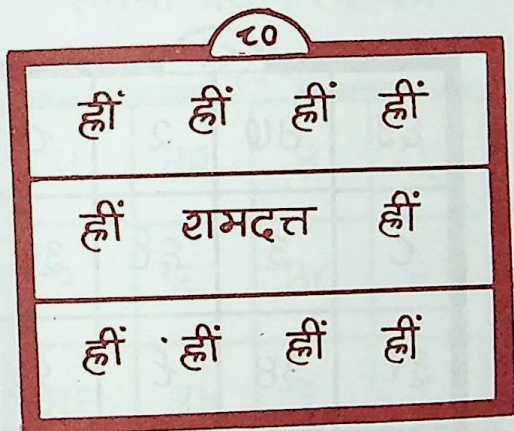 ८०
ह्रीं ह्रीं ह्रीं ह्रीं
ह्रीं रामदत्त ह्रीं
ह्रीं ह्रीं ह्रीं ह्रीं